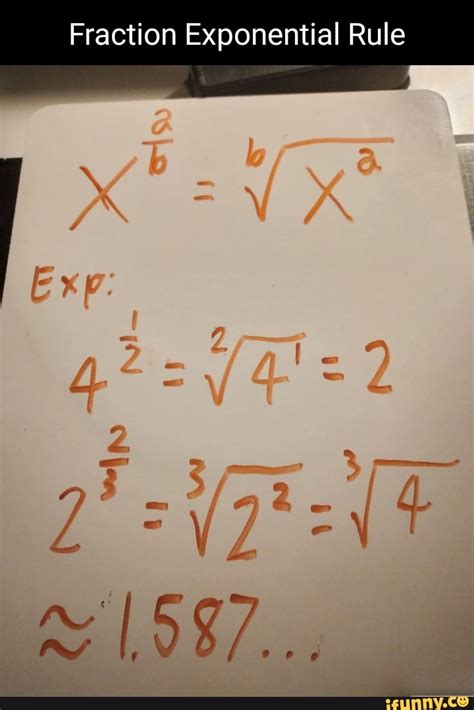 Fraction Exponential Rule
x^(a/b) = ᵇ√(x^a)
Exp:
4^(1/2) = ²√(4^1) = 2
2^(2/3) = ³√(2^2) = ³√4
≈ 1.587...
ifunny.co